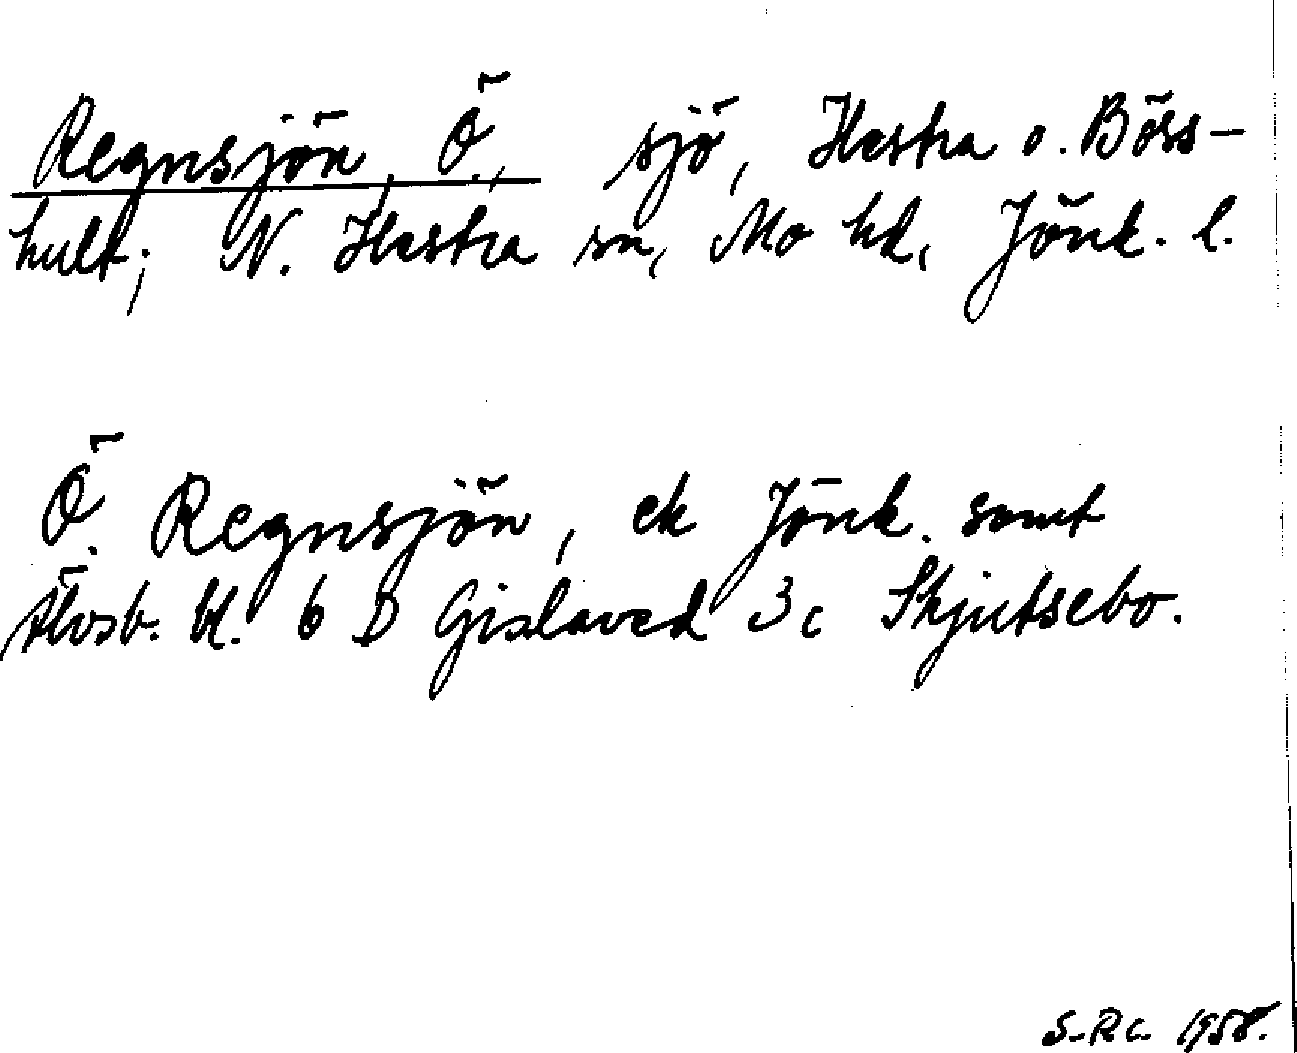 Regnsjön, Ö., sjö, Hestra o. Böss-
hult; N. Hestra sn, Mo hd, Jönk. l.
Ö. Regnsjön, ek Jönk. samt
Älvsb. bl. 6 D Gislaved 3c Skjutsebo.
S-Rc. 1958.